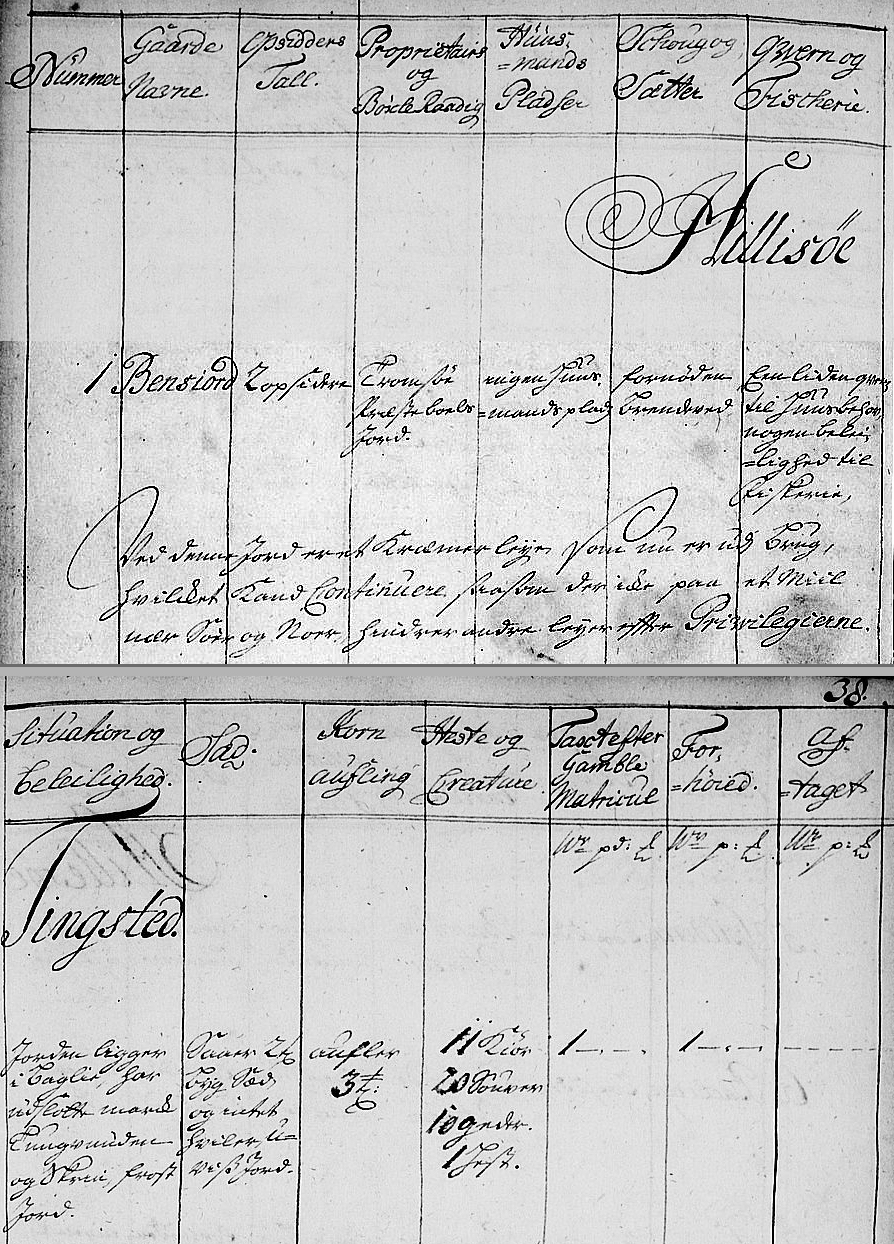 Nummer
Gaarde
Navne.
Opsidders
Tall.
Proprietairs
og
Böxle Raadig
Huus,
=mands
Pladser
Schoug og
Sætter
Qvern og
Fischerie.
Hillisöe
1 Bensiord
2 opsidere
Tromsöe
Præsteboels
Jord.
ingen Huus,
=mands plads
fornöden
brendeved
En liden qvern
til Huusbehov
nogen belei,
=lighed til
Fiskerie,
Ved denne Jord er et Kræmerleye, som nu er ud Brug,
hvilket Kand Continuere, saasom der icke paa et Miil
nær Sör og Noer, hindrer andre leyer effter Privilegierne.
38.
Situation og
beleilighed.
Sæd.
Korn
aufling
Heste og
Creature
Taxt efter
Gamble
Matricul
For,
=höied.
Af,
=taget
Wr pd: L
Wr p: L
Wr p: L
Tingsted.
Jorden ligger
i Baglie, har
udslotte march
Tungvunden
og Skrin, frost
Jord.
Saaer 2 t
byg Sæd
og intet
hviler, u=
viss Jord.
aufler
3 t:
11 Kiör
20 Souver
10 geder.
1 Hest.
1 - . - .
1 - . - .